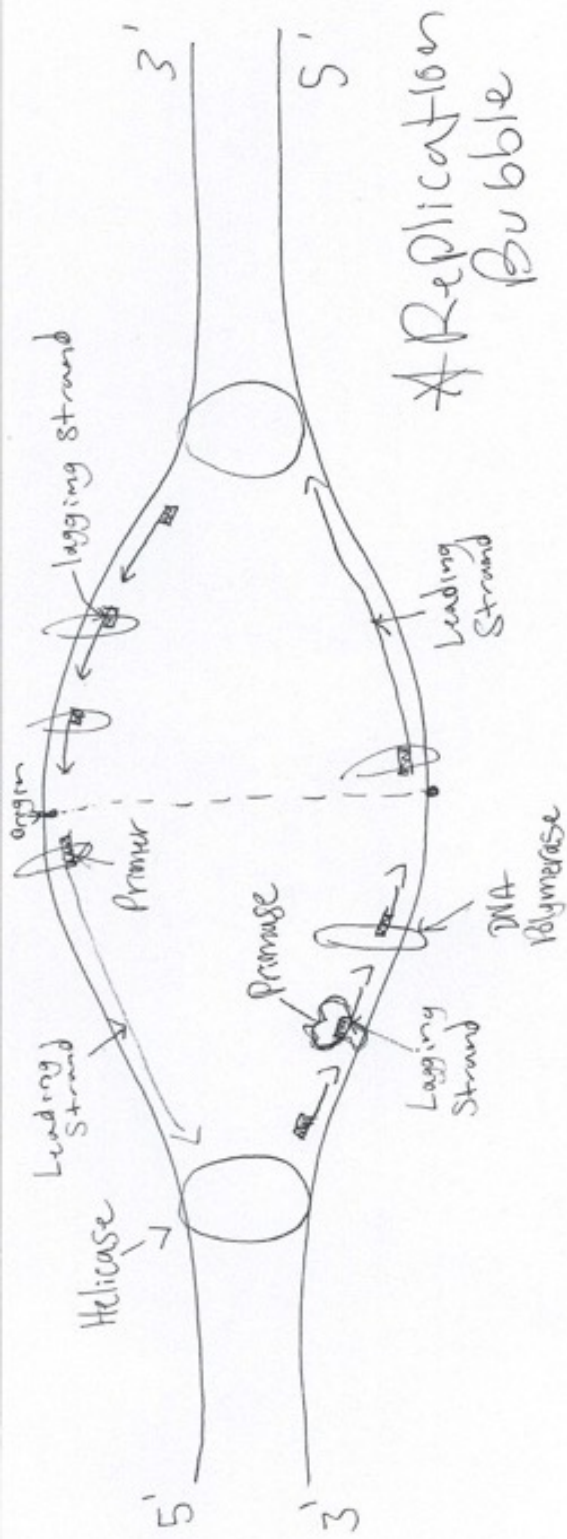 5'
3'
Helicase
Leading
Strand
Origin
Primer
lagging strand
3'
5'
Primase
Lagging
Strand
DNA
Polymerase
Leading
Strand
A Replication
Bubble